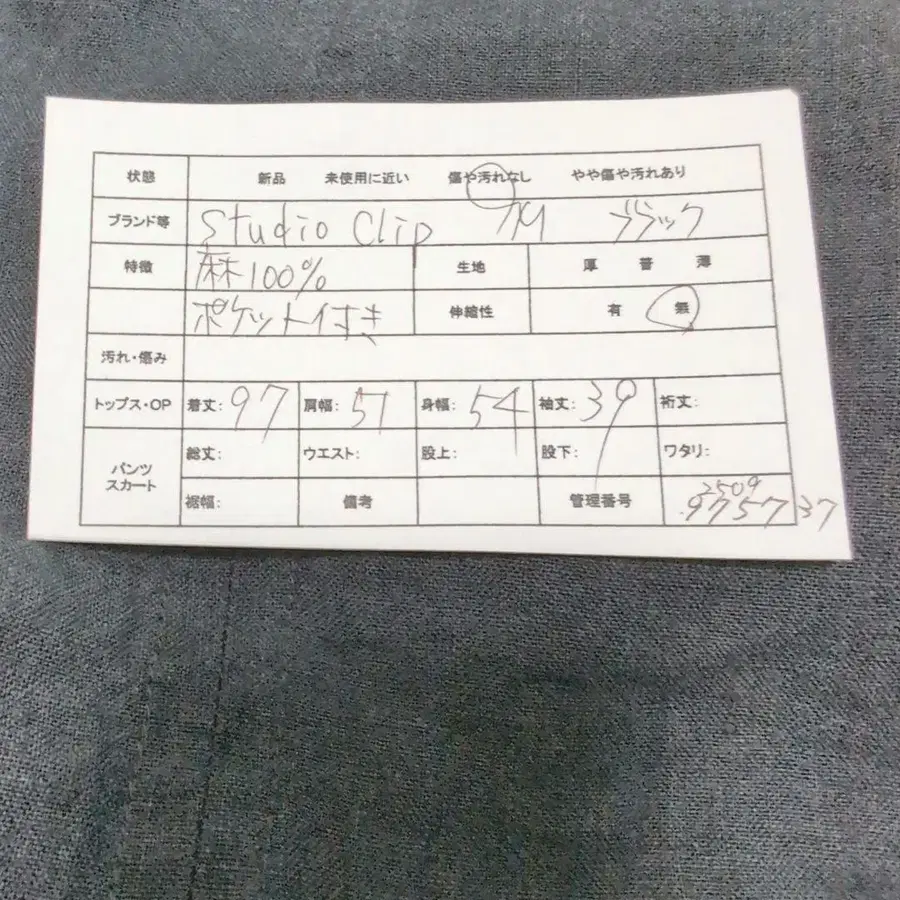 状態 新品 未使用に近い 傷や汚れなし やや傷や汚れあり
ブランド等 studio Clip ブラック
特徴 麻100% 生地 厚 普 薄
ポケット付き 伸縮性 有 無
汚れ・傷み
トップス・OP 着丈: 97 肩幅: 51 身幅: 54 袖丈: 39 裄丈:
パンツ スカート 総丈: ウエスト: 股上: 股下: ワタリ:
裾幅: 備考 管理番号 2509
9757 37